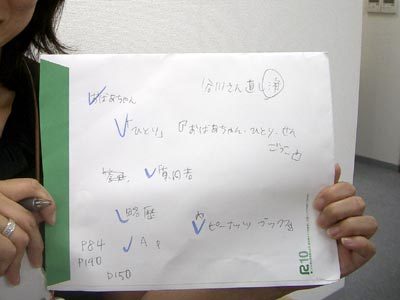 谷川さん直し済
おばあちゃん
「ひとり」 『おばあちゃん、ひとり、せん
ごっこ』
質問者
略歴 ピーナッツ ブックス
P84 A
P190
P150
R10